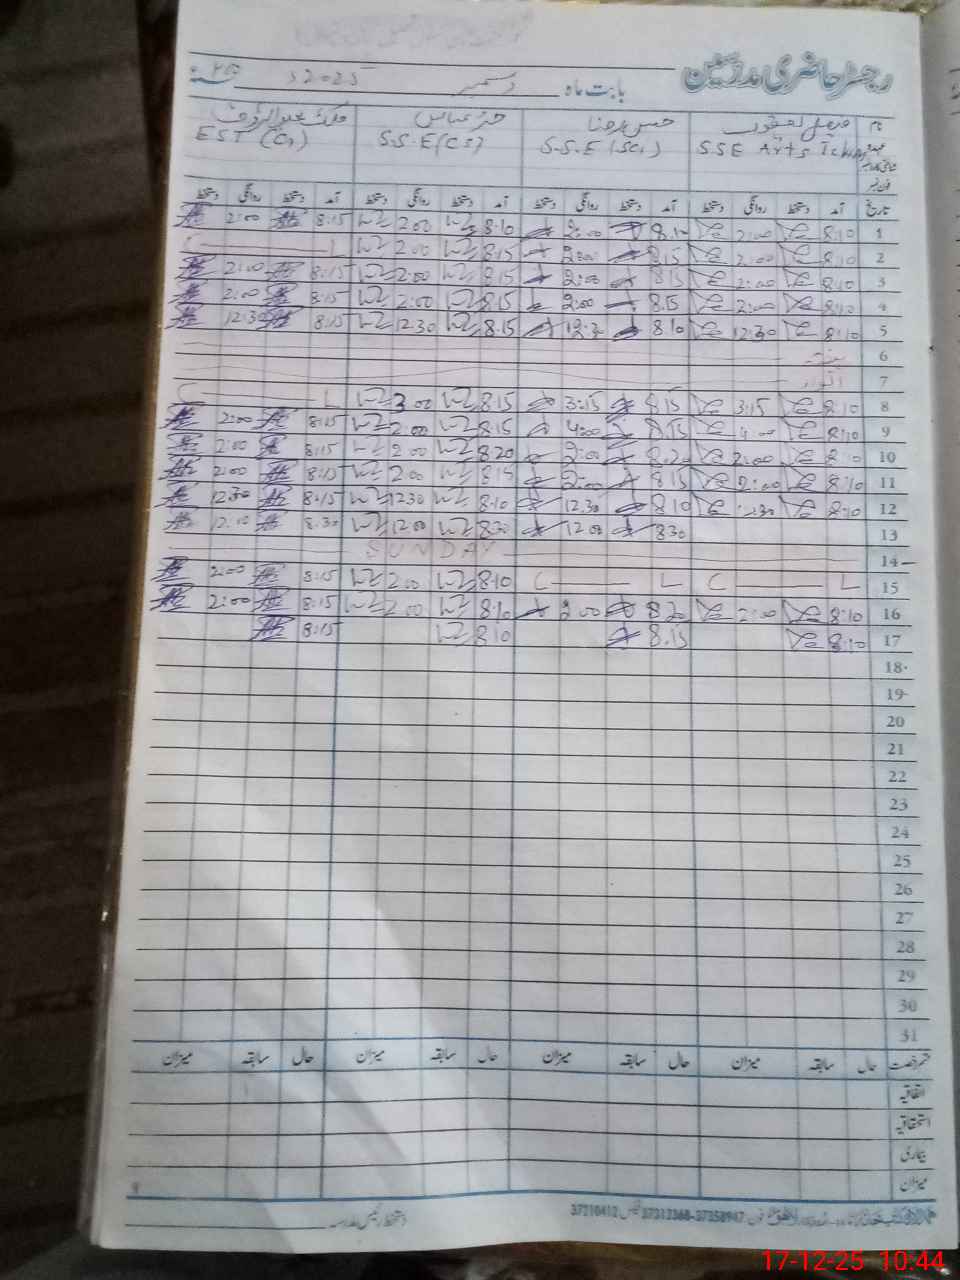 رجسٹر حاضری مدرسین
بابت ماہ دسمبر 2025
نام فیصل یعقوب حسن رضا عباس ملک
عہدہ SSE Arts S.S.E (Sci) S.S.E (CS) EST
فون نمبر
تاریخ آمد دستخط روانگی دستخط آمد دستخط روانگی دستخط آمد دستخط روانگی دستخط آمد دستخط روانگی دستخط
1 8:10 2:00 8.10 2:00 8.10 2.00 8:15 2:00
2 8:10 2:00 8.15 2:00 8.15 2.00 L C
3 8:10 2:00 8.15 2:00 8.15 2:00 8:15 2:00
4 8:10 2:00 8.15 2:00 8.15 2:00 8:15 2:00
5 8:10 12:30 8.10 12:30 8.15 12.30 8:15 12:30
6 ہفتہ
7 اتوار
8 8:10 3:15 8.15 3:15 8.15 3.00 L C
9 8:10 4:00 8.15 4:00 8.15 2.00 8:15 2:00
10 8:10 2:00 8.20 2:00 8.20 2.00 8:15 2:00
11 8:10 2:00 8.15 2:00 8.15 2.00 8:15 2:00
12 8:10 12:30 8.10 12.30 8.10 12.30 8:15 12:30
13 8.30 12.00 8.30 12.00 8.30
14 SUNDAY
15 L C L C 8.10 2.00 8:15 2:00
16 8:10 2:00 8.20 2.00 8.10 2.00 8:15 2:00
17 8:10 8.15 8.10 8:15
18
19
20
21
22
23
24
25
26
27
28
29
30
31
حال سابقہ میزان حال سابقہ میزان حال سابقہ میزان حال سابقہ میزان
اتفاقیہ
استحقاقیہ
بیماری
میزان
دستخط رئیس مدرسہ
37210412 37312368-37358947
17-12-25 10:44